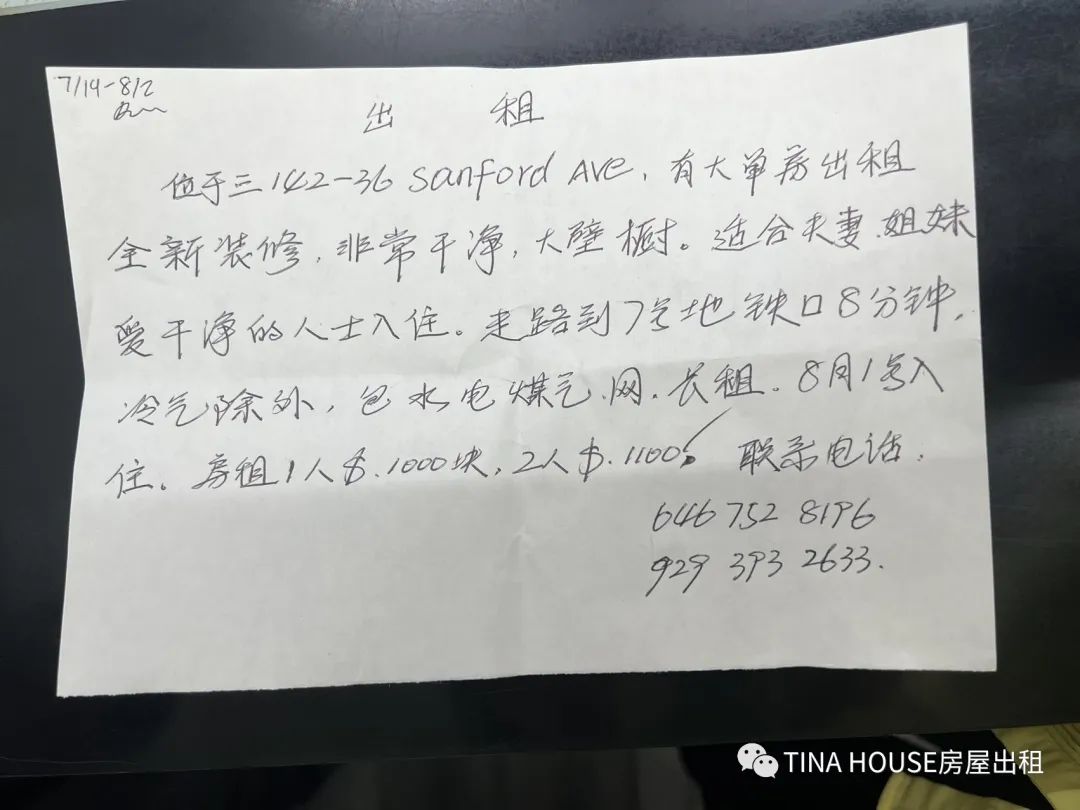 7/14-8/2
出 租
位于三142-36 Sanford Ave, 有大单房出租
全新装修, 非常干净, 大壁橱。适合夫妻.姐妹
爱干净的人士入住。走路到7号地铁口8分钟,
冷气除外, 包水电煤气.网.长租. 8月1号入
住。房租1人$.1000块, 2人$.1100. 联系电话.
646 752 8196
929 393 2633.
TINA HOUSE房屋出租